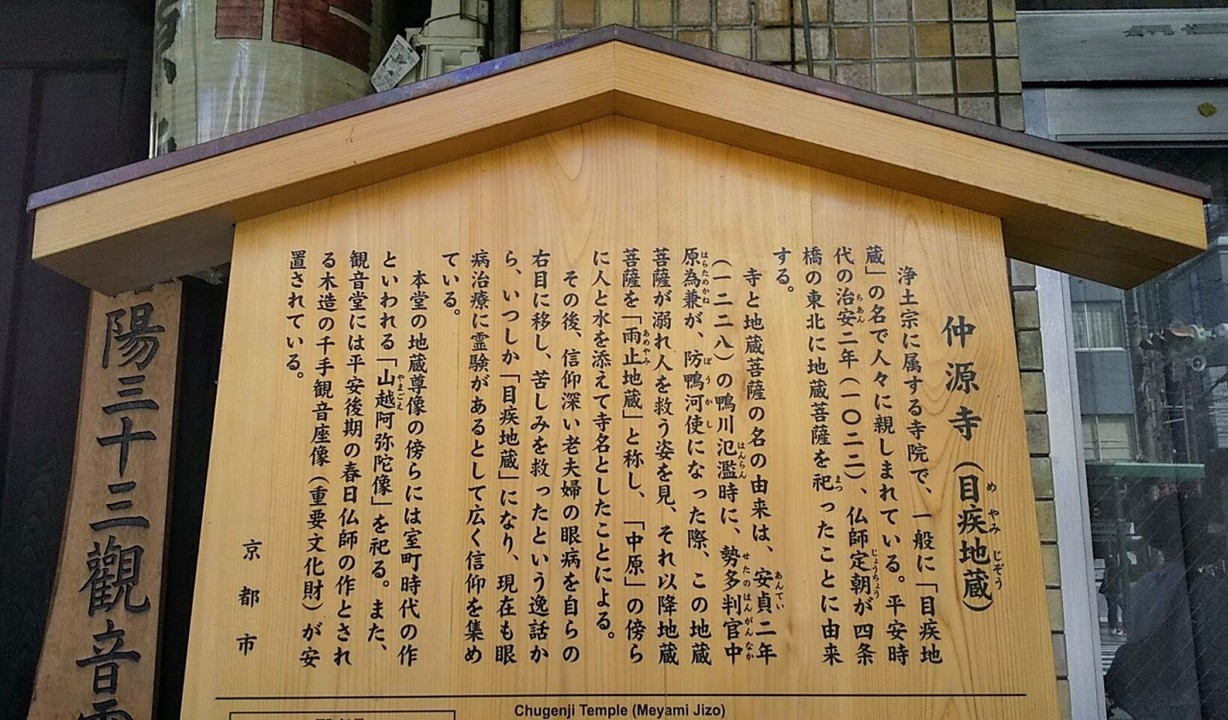 仲源寺（目疾地蔵）
めやみじぞう
浄土宗に属する寺院で、一般に「目疾地
蔵」の名で人々に親しまれている。平安時
代の治安二年（一〇二二）、仏師定朝が四条
ちあん
じょうちょう
橋の東北に地蔵菩薩を祀ったことに由来
まつ
する。
寺と地蔵菩薩の名の由来は、安貞二年
あんてい
（一二二八）の鴨川氾濫時に、勢多判官中
はんらん
せたのはんがんなか
原為兼が、防鴨河使になった際、この地蔵
はらためかね
ぼうかし
菩薩が溺れ人を救う姿を見、それ以降地蔵
菩薩を「雨止地蔵」と称し、「中原」の傍ら
あめやみ
に人と水を添えて寺名としたことによる。
その後、信仰深い老夫婦の眼病を自らの
右目に移し、苦しみを救ったという逸話か
ら、いつしか「目疾地蔵」になり、現在も眼
病治療に霊験があるとして広く信仰を集め
ている。
本堂の地蔵尊像の傍らには室町時代の作
といわれる「山越阿弥陀像」を祀る。また、
やまごえ
観音堂には平安後期の春日仏師の作とされ
る木造の千手観音座像（重要文化財）が安
置されている。
京都市
陽三十三觀音
Chugenji Temple (Meyami Jizo)